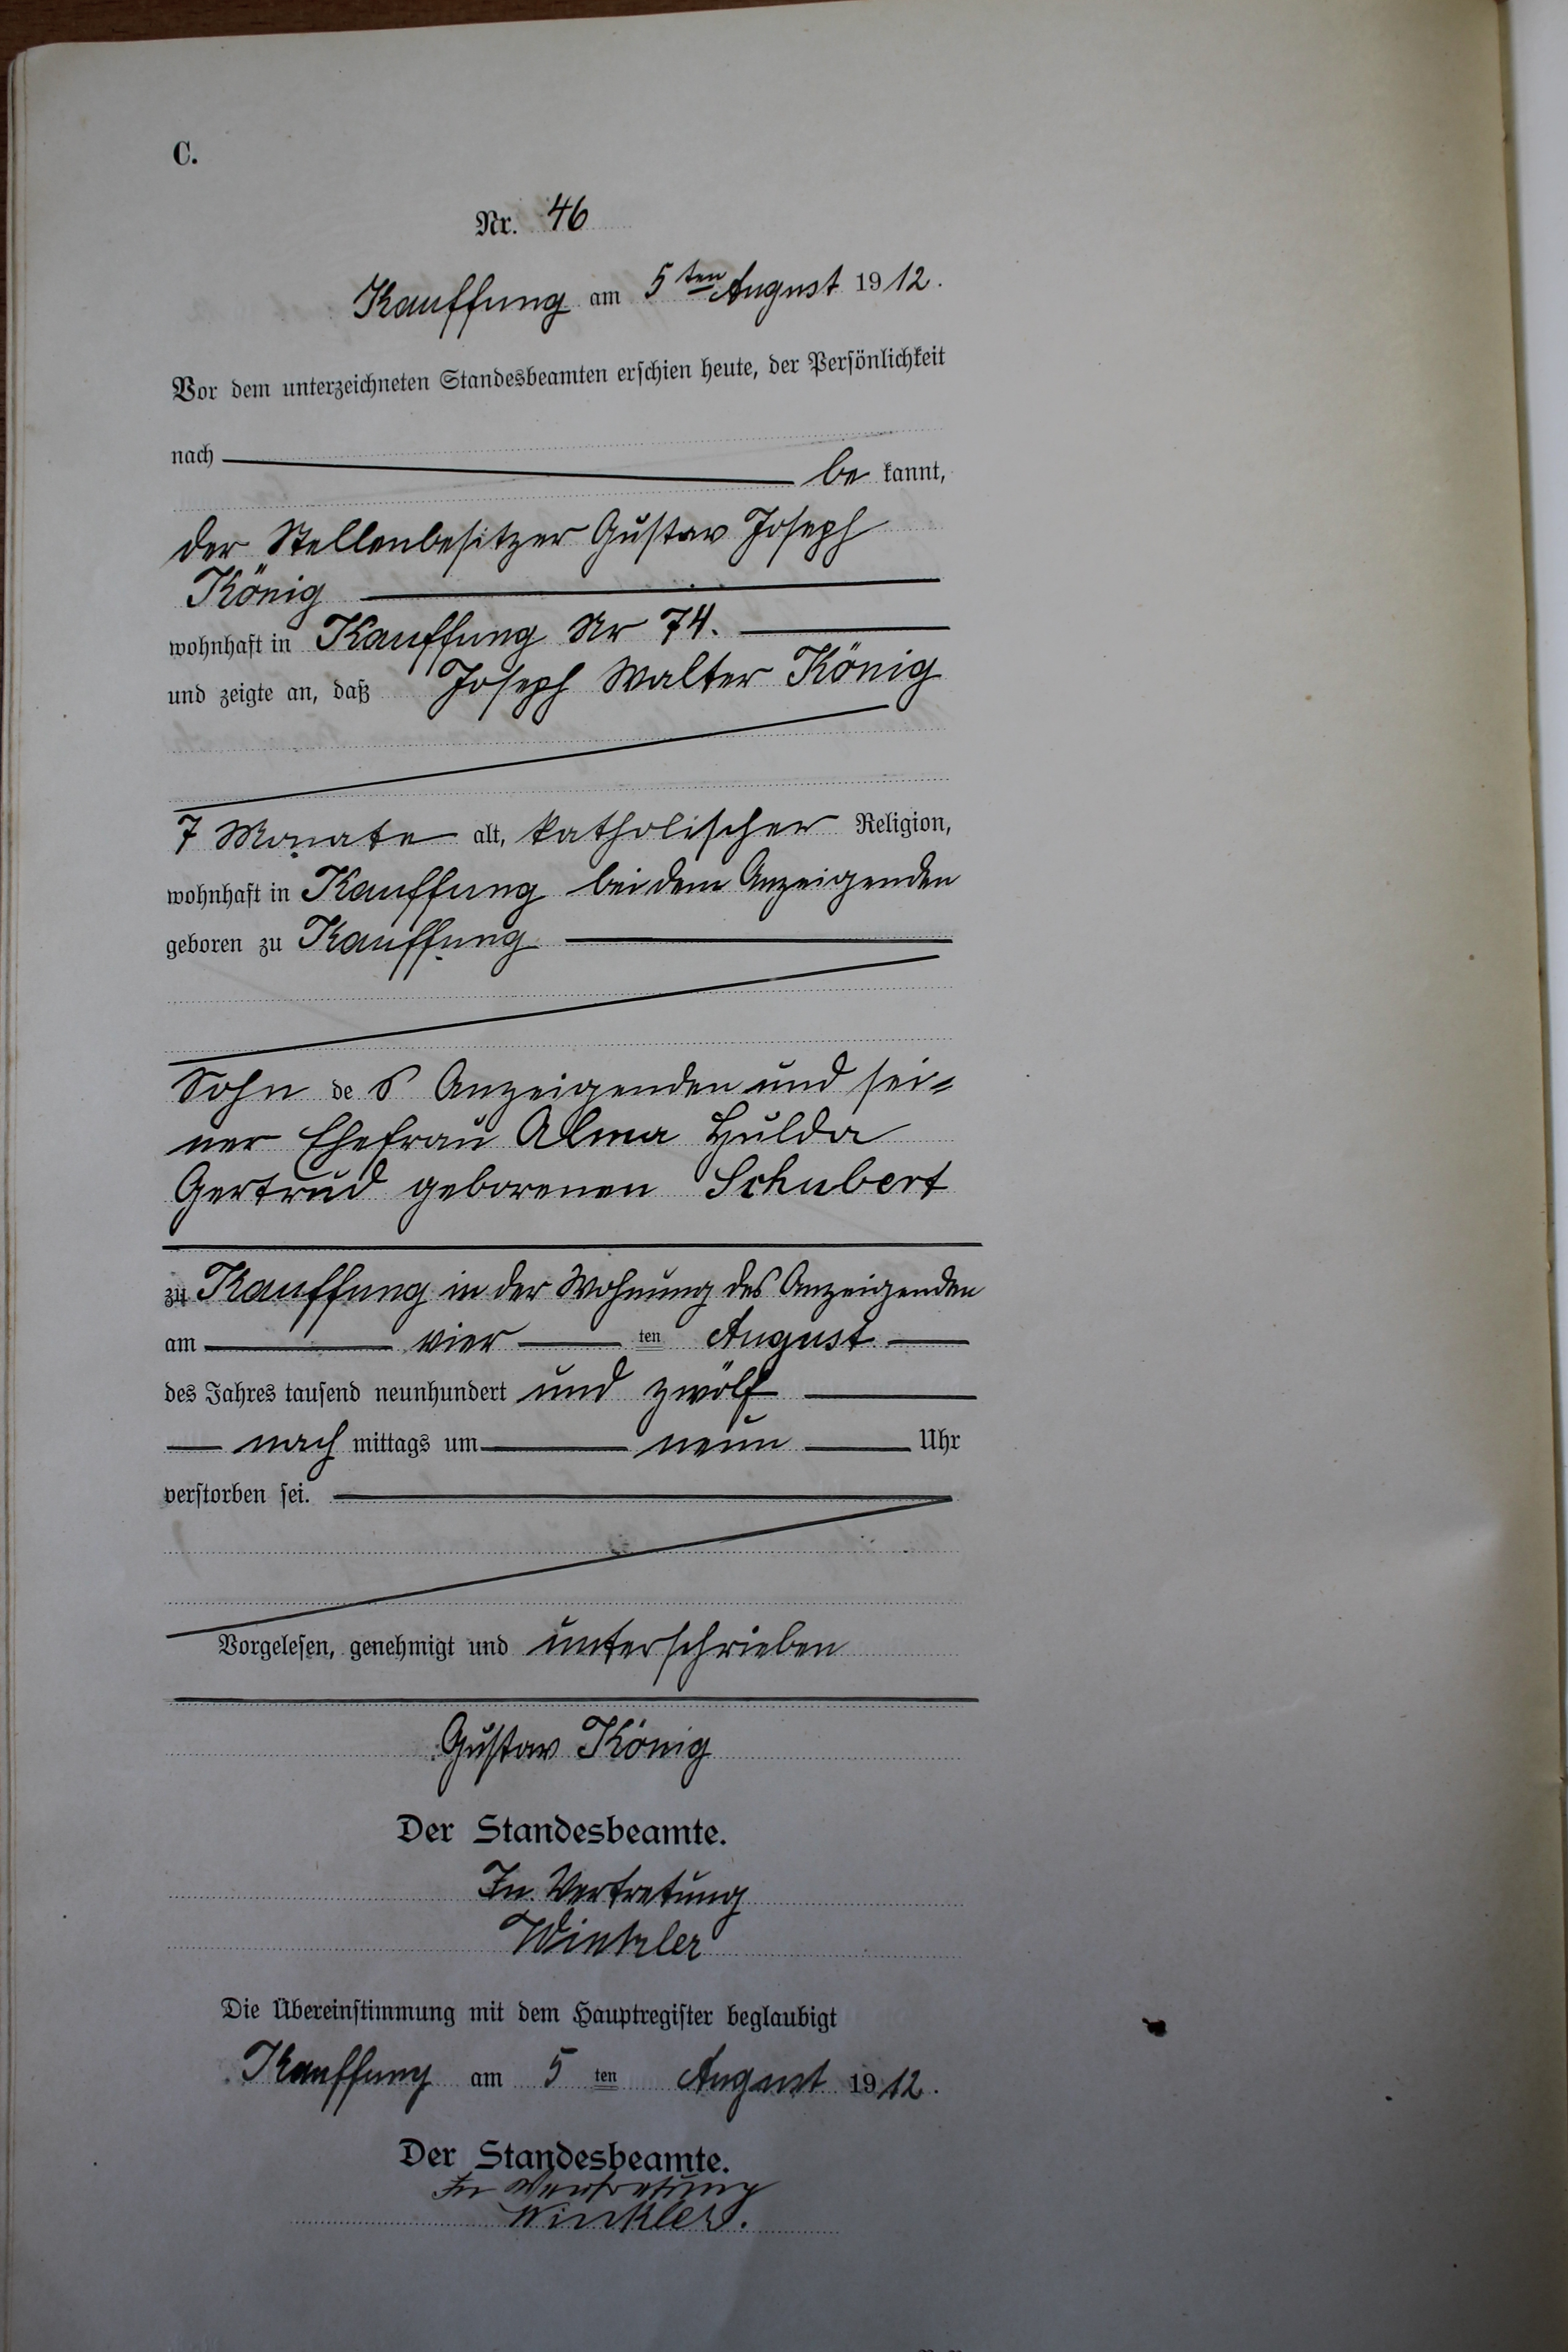 C.
Nr. 46
Kauffung am 5ten August 1912.
Vor dem unterzeichneten Standesbeamten erschien heute, der Persönlichkeit
nach be kannt,
der Stellenbesitzer Gustav Joseph
König
wohnhaft in Kauffung Nr 74.
und zeigte an, daß Joseph Walter König
7 Monate alt, katholischer Religion,
wohnhaft in Kauffung bei dem Anzeigenden
geboren zu Kauffung
Sohn des Anzeigenden und sei-
ner Ehefrau Alma Hulda
Gertrud geborenen Schubert
zu Kauffung in der Wohnung des Anzeigenden
am vier ten August
des Jahres tausend neunhundert und zwölf
nach mittags um neun Uhr
verstorben sei.
Vorgelesen, genehmigt und unterschrieben
Gustav König
Der Standesbeamte.
In Vertretung
Winkler
Die Übereinstimmung mit dem Hauptregister beglaubigt
Kauffung am 5 ten August 1912.
Der Standesbeamte.
In Vertretung
Winkler.